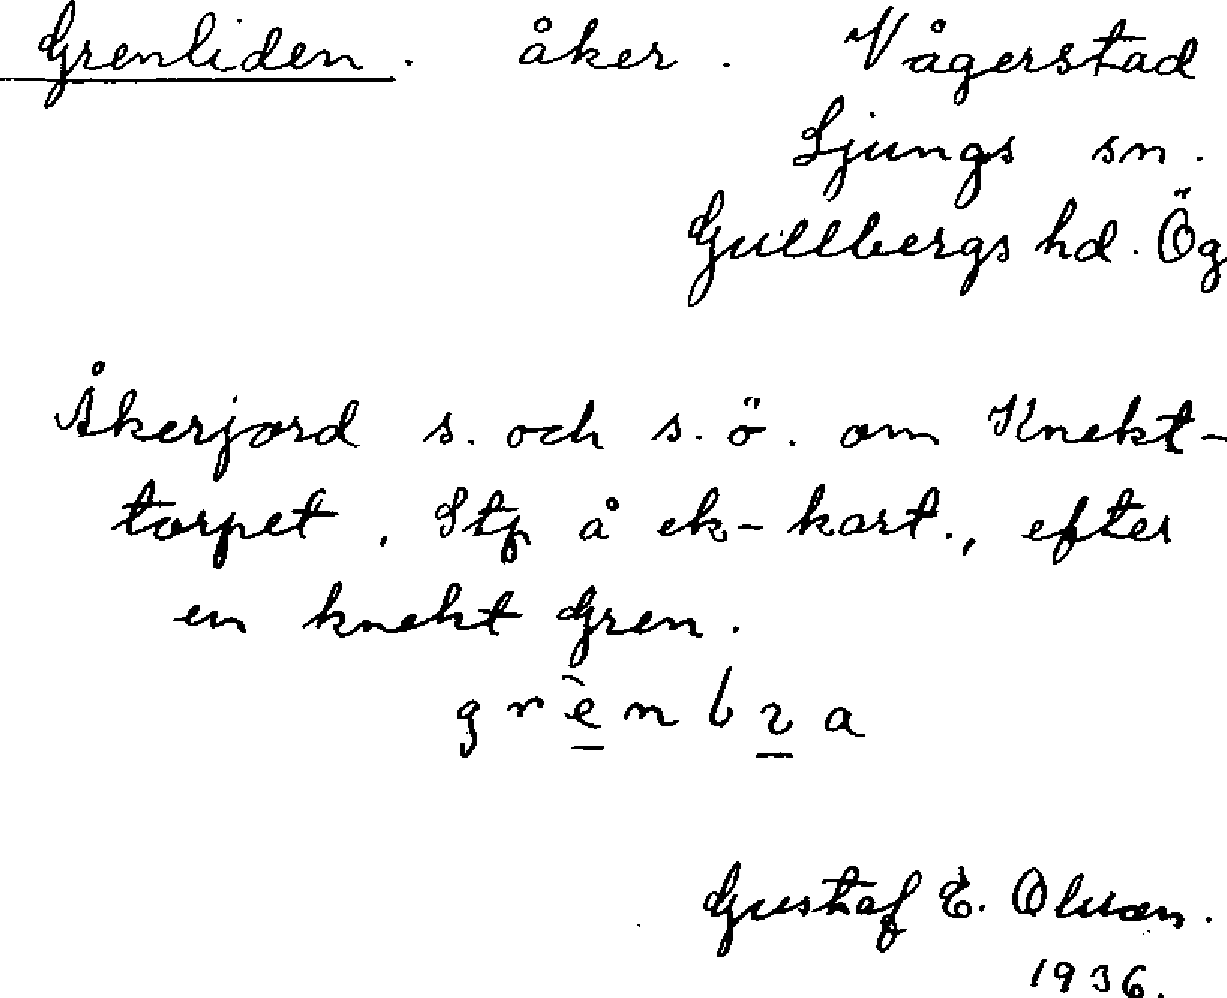 Grenliden. åker. Vågerstad
Ljungs sn.
Gullbergs hd. Ög
Åkerjord s. och s.ö. om Knekt-
torpet. Stp å ek-kart., efter
en knekt Gren.
Gustaf E. Olsson.
1936.